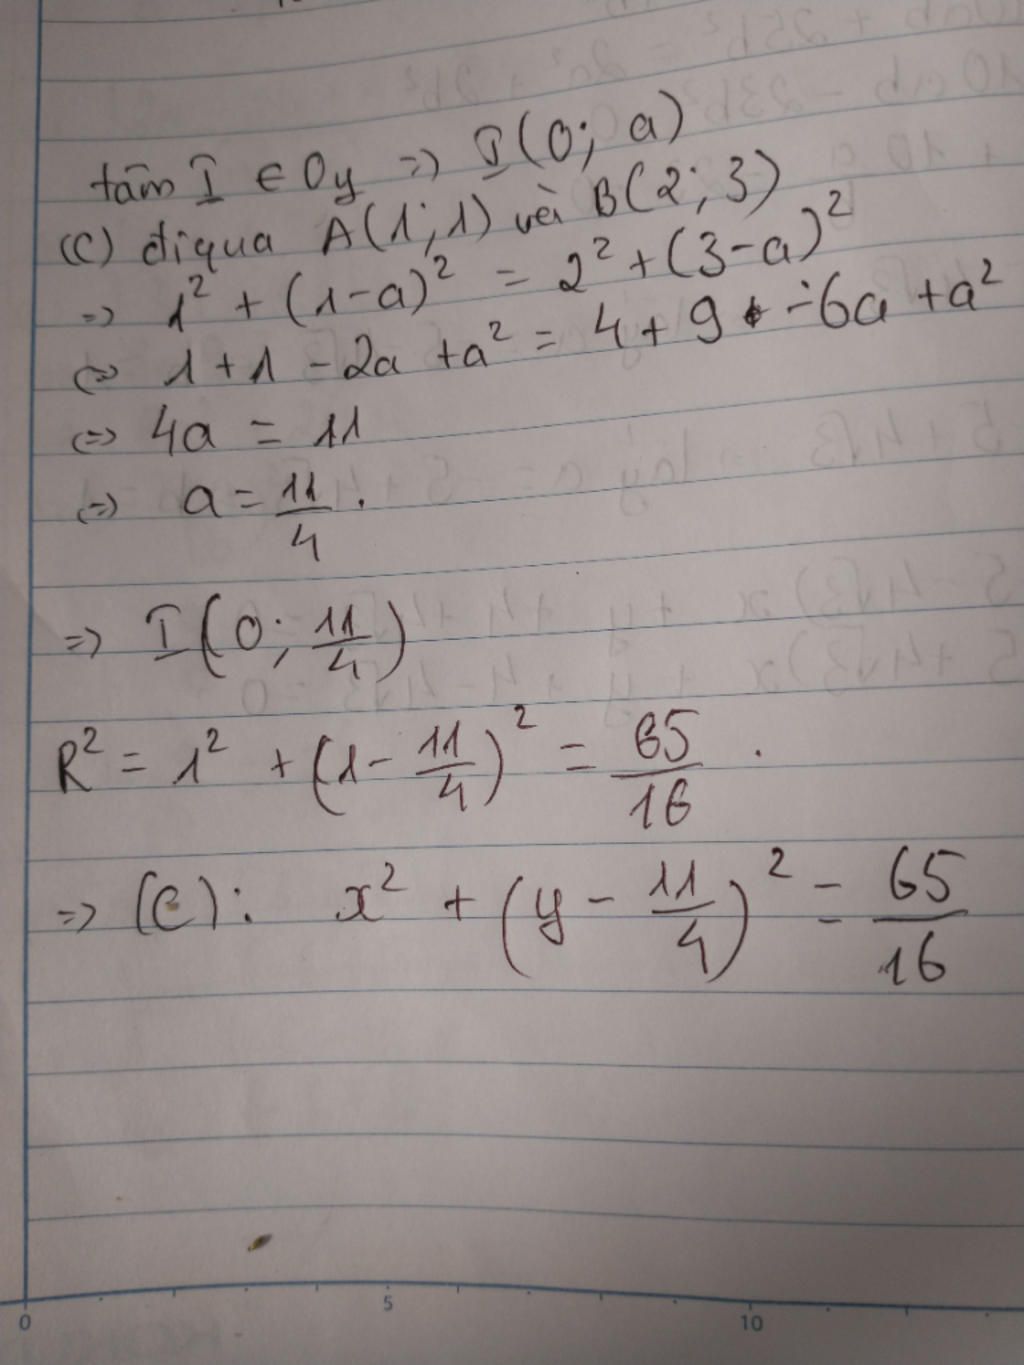 tâm I ∈ Oy => I(0; a)
(C) đi qua A(1;1) và B(2;3)
=> 1² + (1-a)² = 2² + (3-a)²
<=> 1+1 -2a +a² = 4+9 -6a +a²
<=> 4a = 11
<=> a = 11/4 .
=> I(0; 11/4)
R² = 1² + (1- 11/4)² = 65/16 .
=> (C): x² + (y - 11/4)² = 65/16
0 5 10